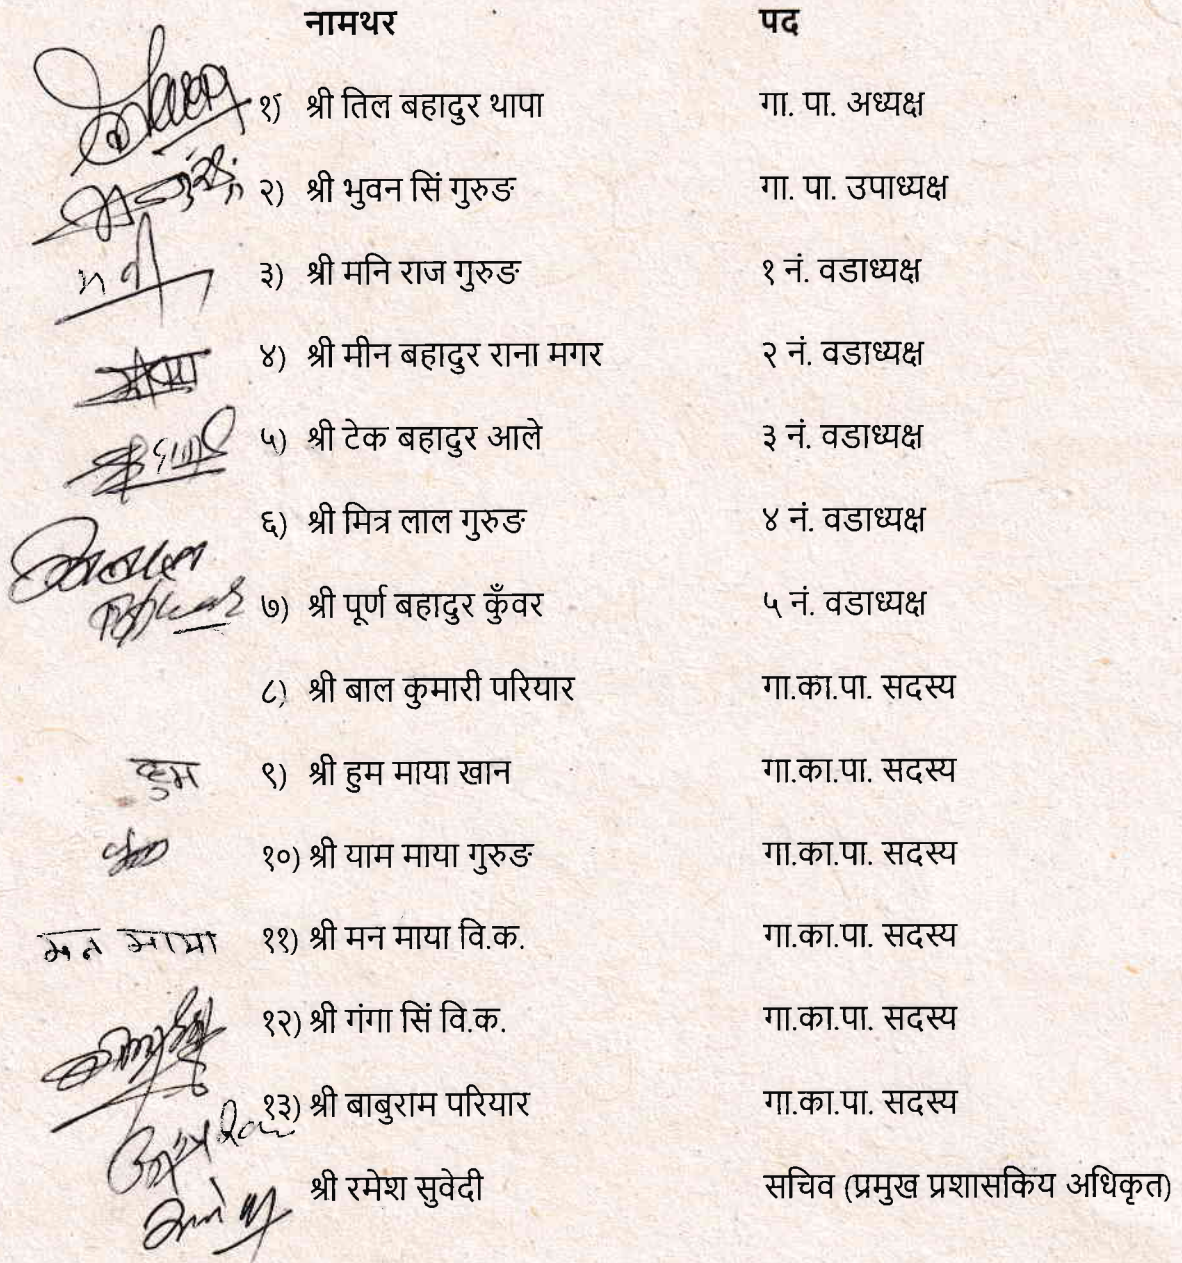 नामथर पद
१) श्री तिल बहादुर थापा गा. पा. अध्यक्ष
२) श्री भुवन सिं गुरुङ गा. पा. उपाध्यक्ष
३) श्री मनि राज गुरुङ १ नं. वडाध्यक्ष
४) श्री मीन बहादुर राना मगर २ नं. वडाध्यक्ष
५) श्री टेक बहादुर आले ३ नं. वडाध्यक्ष
६) श्री मित्र लाल गुरुङ ४ नं. वडाध्यक्ष
७) श्री पूर्ण बहादुर कुँवर ५ नं. वडाध्यक्ष
८) श्री बाल कुमारी परियार गा.का.पा. सदस्य
हुम ९) श्री हुम माया खान गा.का.पा. सदस्य
१०) श्री याम माया गुरुङ गा.का.पा. सदस्य
मन माया ११) श्री मन माया वि.क. गा.का.पा. सदस्य
१२) श्री गंगा सिं वि.क. गा.का.पा. सदस्य
१३) श्री बाबुराम परियार गा.का.पा. सदस्य
श्री रमेश सुवेदी सचिव (प्रमुख प्रशासकिय अधिकृत)